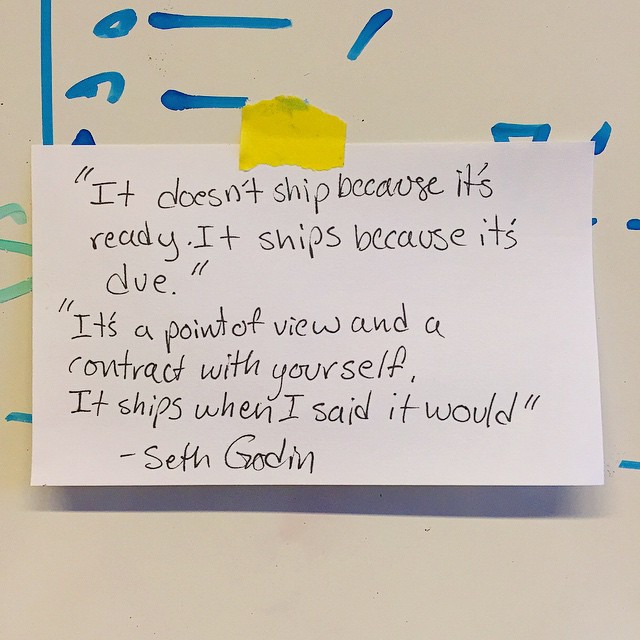 "It doesn't ship because it's
ready. It ships because it's
due."
"It's a point of view and a
contract with yourself.
It ships when I said it would"
- Seth Godin